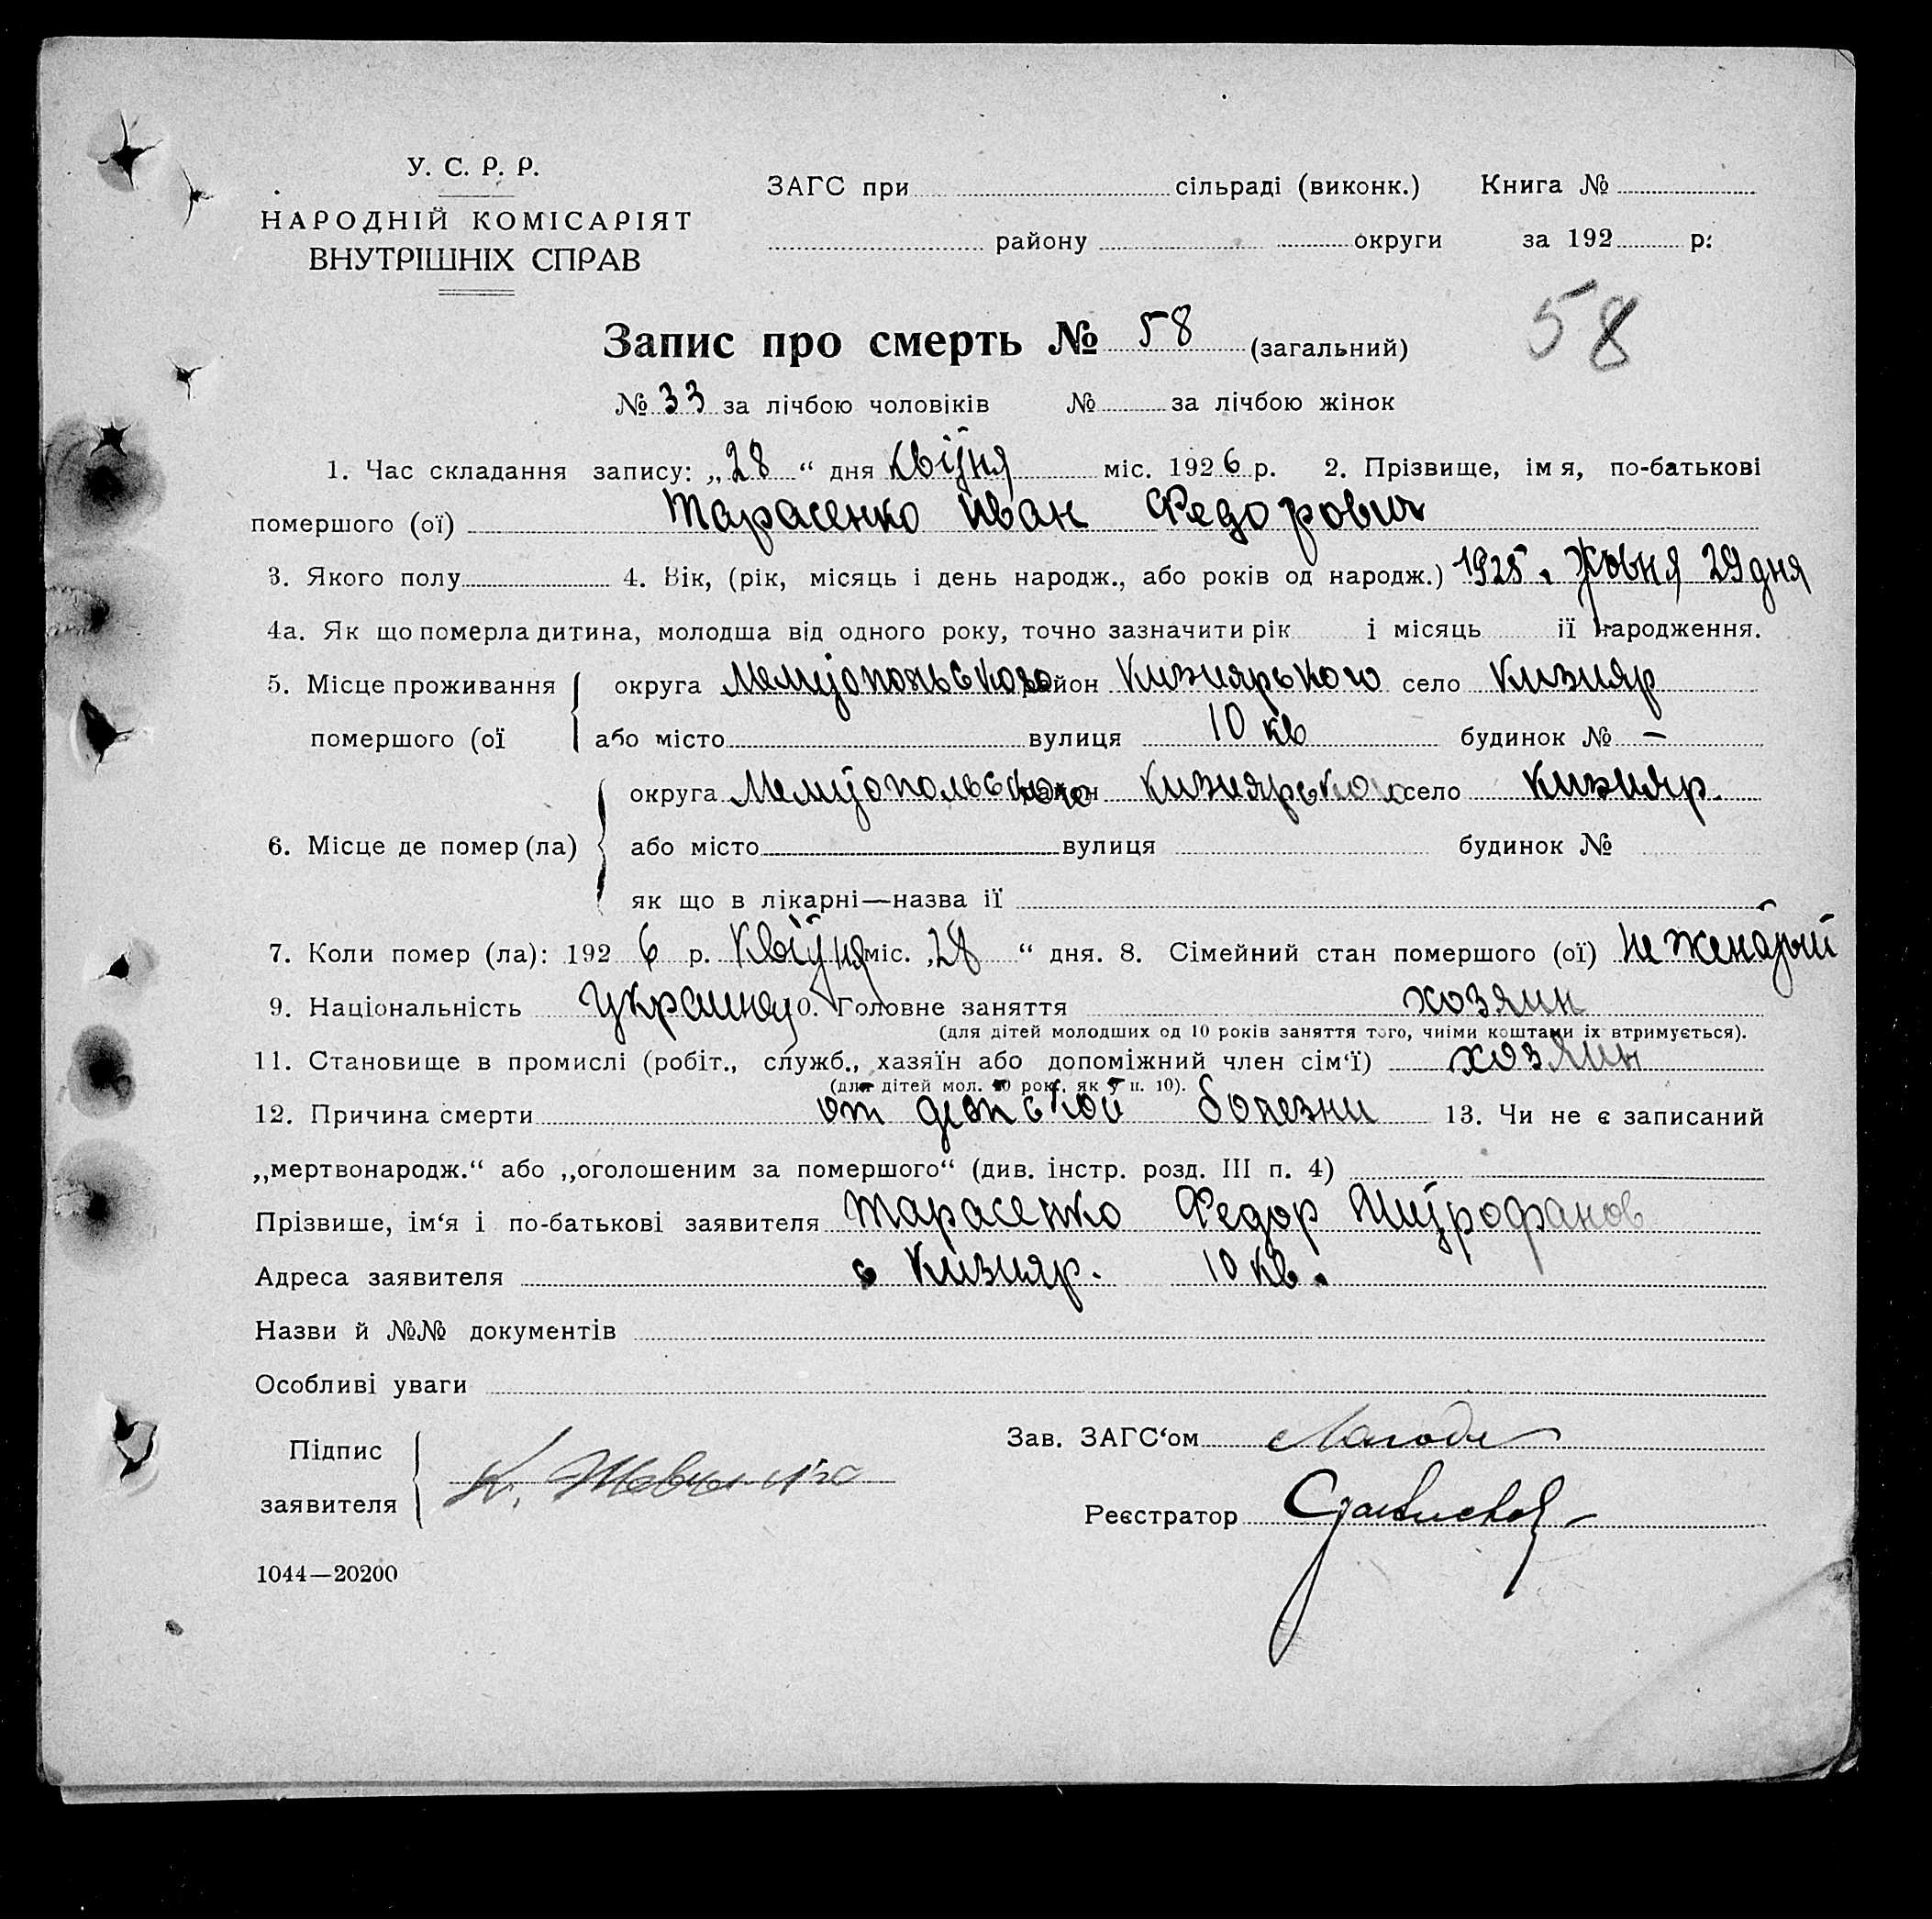 У. С. Р. Р.
НАРОДНІЙ КОМІСАРІЯТ
ВНУТРІШНІХ СПРАВ
ЗАГС при сільраді (виконк.) Книга №
району округи за 192 р.
58
Запис про смерть № 58 (загальний)
№ 33 за лічбою чоловіків № за лічбою жінок
1. Час складання запису: „28“ дня квітня міс. 1926 р. 2. Прізвище, імя, по-батькові
помершого (ої) Тарасенко Иван Федорович
3. Якого полу 4. Вік, (рік, місяць і день народж., або років од народж.) 1925, Жовня 29 дня
4а. Як що померла дитина, молодша від одного року, точно зазначити рік і місяць її народження.
5. Місце проживання округа Мелитопольского район Кизиярького село Кизияр
помершого (ої або місто вулиця 10 кв будинок № —
округа Мелитопольського район Кизиярького село Кизияр.
6. Місце де помер (ла) або місто вулиця будинок №
як що в лікарні—назва її
7. Коли помер (ла): 1926 р. Квітня міс. „28“ дня. 8. Сімейний стан помершого (ої) не женатый
9. Національність украинец 10. Головне заняття хозяин
(для дітей молодших од 10 років заняття того, чиїми коштами їх втримується).
11. Становище в промислі (робіт., служб., хазяїн або допоміжний член сім‘ї) хозяин
(для дітей мол. 10 рок., як п. 10).
12. Причина смерти от детской болезни 13. Чи не є записаний
„мертвонародж.“ або „оголошеним за помершого“ (див. інстр. розд. III п. 4)
Прізвише, ім‘я і по-батькові заявителя Тарасенко Федор Митрофанов
Адреса заявителя с Кизияр. 10 кв.
Назви й №№ документів
Особливі уваги
Підпис
заявителя
Зав. ЗАГС‘ом
Реєстратор
1044—20200